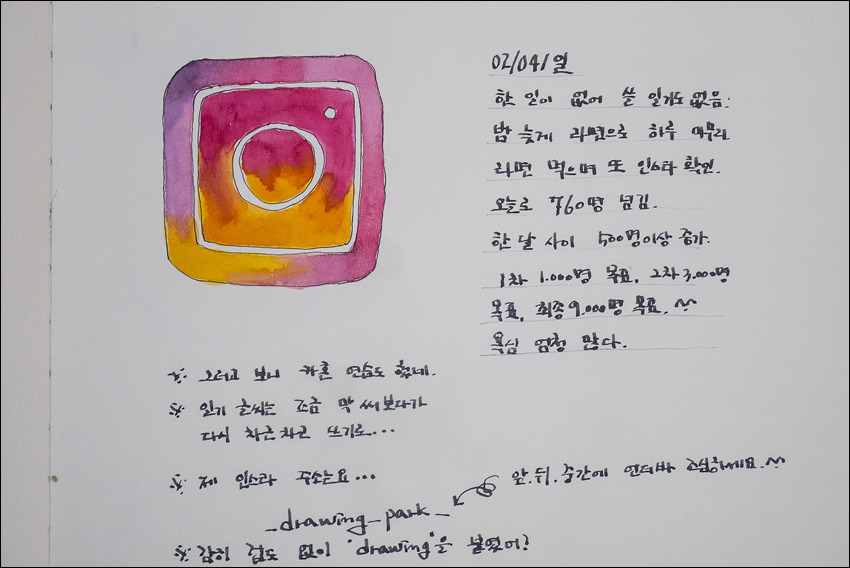 02/04/일
한 일이 없어 쓸 일기도 없음.
밤 늦게 라면으로 하루 마무리
라면 먹으며 또 인스타 확인.
오늘로 760명 넘김.
한 달 사이 500명이상 증가.
1차 1.000명 목표, 2차 3.000명
목표, 최종 9.000명 목표. ^^
욕심 엄청 많다.
※ 그러고 보니 카혼 연습도 했네.
※ 일기 글씨는 조금 막 써보다가
다시 차근차근 쓰기로...
※ 제 인스타 주소는요...
앞.뒤.중간에 언더바 조심하세요.^^
_drawing_park_
※ 감히 겁도 없이 'drawing'을 붙였어!